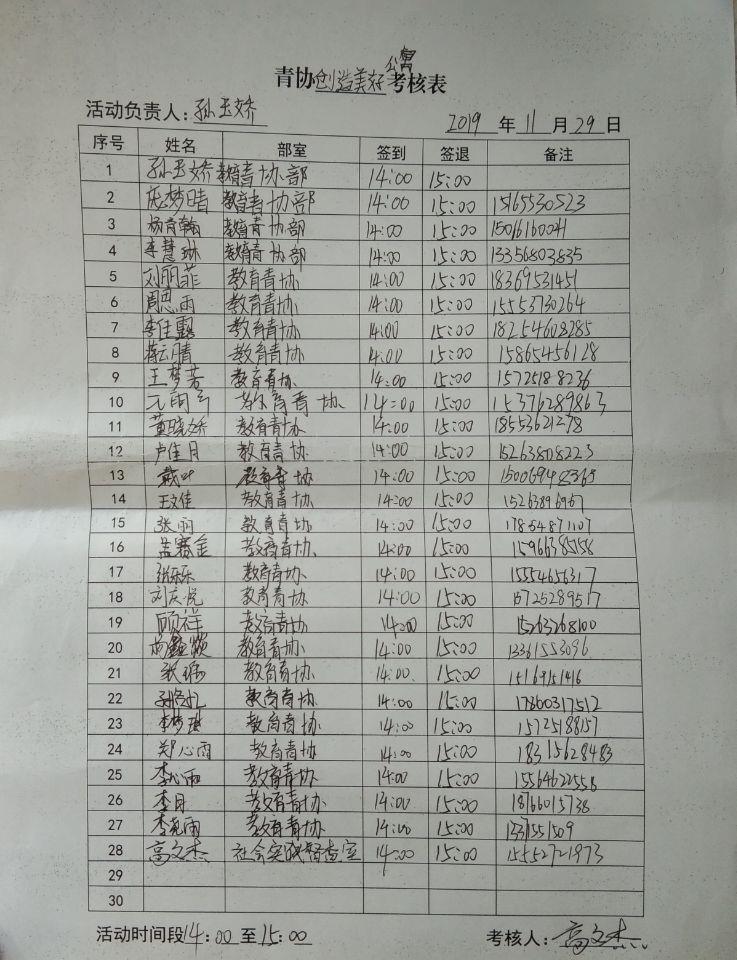 青协创造美好公寓考核表
活动负责人：孙玉娇
2019 年 11 月 29 日
序号 姓名 部室 签到 签退 备注
1 孙玉娇 教育青协部 14:00 15:00
2 庞梦晴 教育青协部 14:00 15:00 15165530523
3 杨育翰 教育青协部 14:00 15:00 15016160041
4 李慧琳 教育青协部 14:00 15:00 13356803835
5 刘丽菲 教育青协 14:00 15:00 18369531451
6 周恩雨 教育青协 14:00 15:00 15553730264
7 李佳露 教育青协 14:00 15:00 18254608285
8 蒋云倩 教育青协 14:00 15:00 15865456128
9 王梦芳 教育青协 14:00 15:00 15725188236
10 元雨兮 教育青协 14:00 15:00 15376289863
11 黄晓娇 教育青协 14:00 15:00 18553621278
12 卢佳月 教育青协 14:00 15:00 15263808223
13 戴叶 教育青协 14:00 15:00 15006948365
14 王文佳 教育青协 14:00 15:00 15263896967
15 张雨 教育青协 14:00 15:00 17854871107
16 孟赛金 教育青协 14:00 15:00 15966385158
17 张乐乐 教育青协 14:00 15:00 15554656317
18 刘庆悦 教育青协 14:00 15:00 15725289517
19 顾祥 教育青协 14:00 15:00 15263268100
20 教育青协 14:00 15:00 13361553096
21 张瑞 教育青协 14:00 15:00 15169151416
22 教育青协 14:00 15:00 17860317512
23 李梦琪 教育青协 14:00 15:00 1572518815
24 郑心雨 教育青协 14:00 15:00 18315628483
25 李心雨 教育青协 14:00 15:00 15564622558
26 李月 教育青协 14:00 15:00 18766015738
27 李克雨 教育青协 14:00 15:00 1337551509
28 高文杰 社会实践督查室 14:00 15:00 15552721973
29
30
活动时间段 14:00 至 15:00
考核人：高文杰